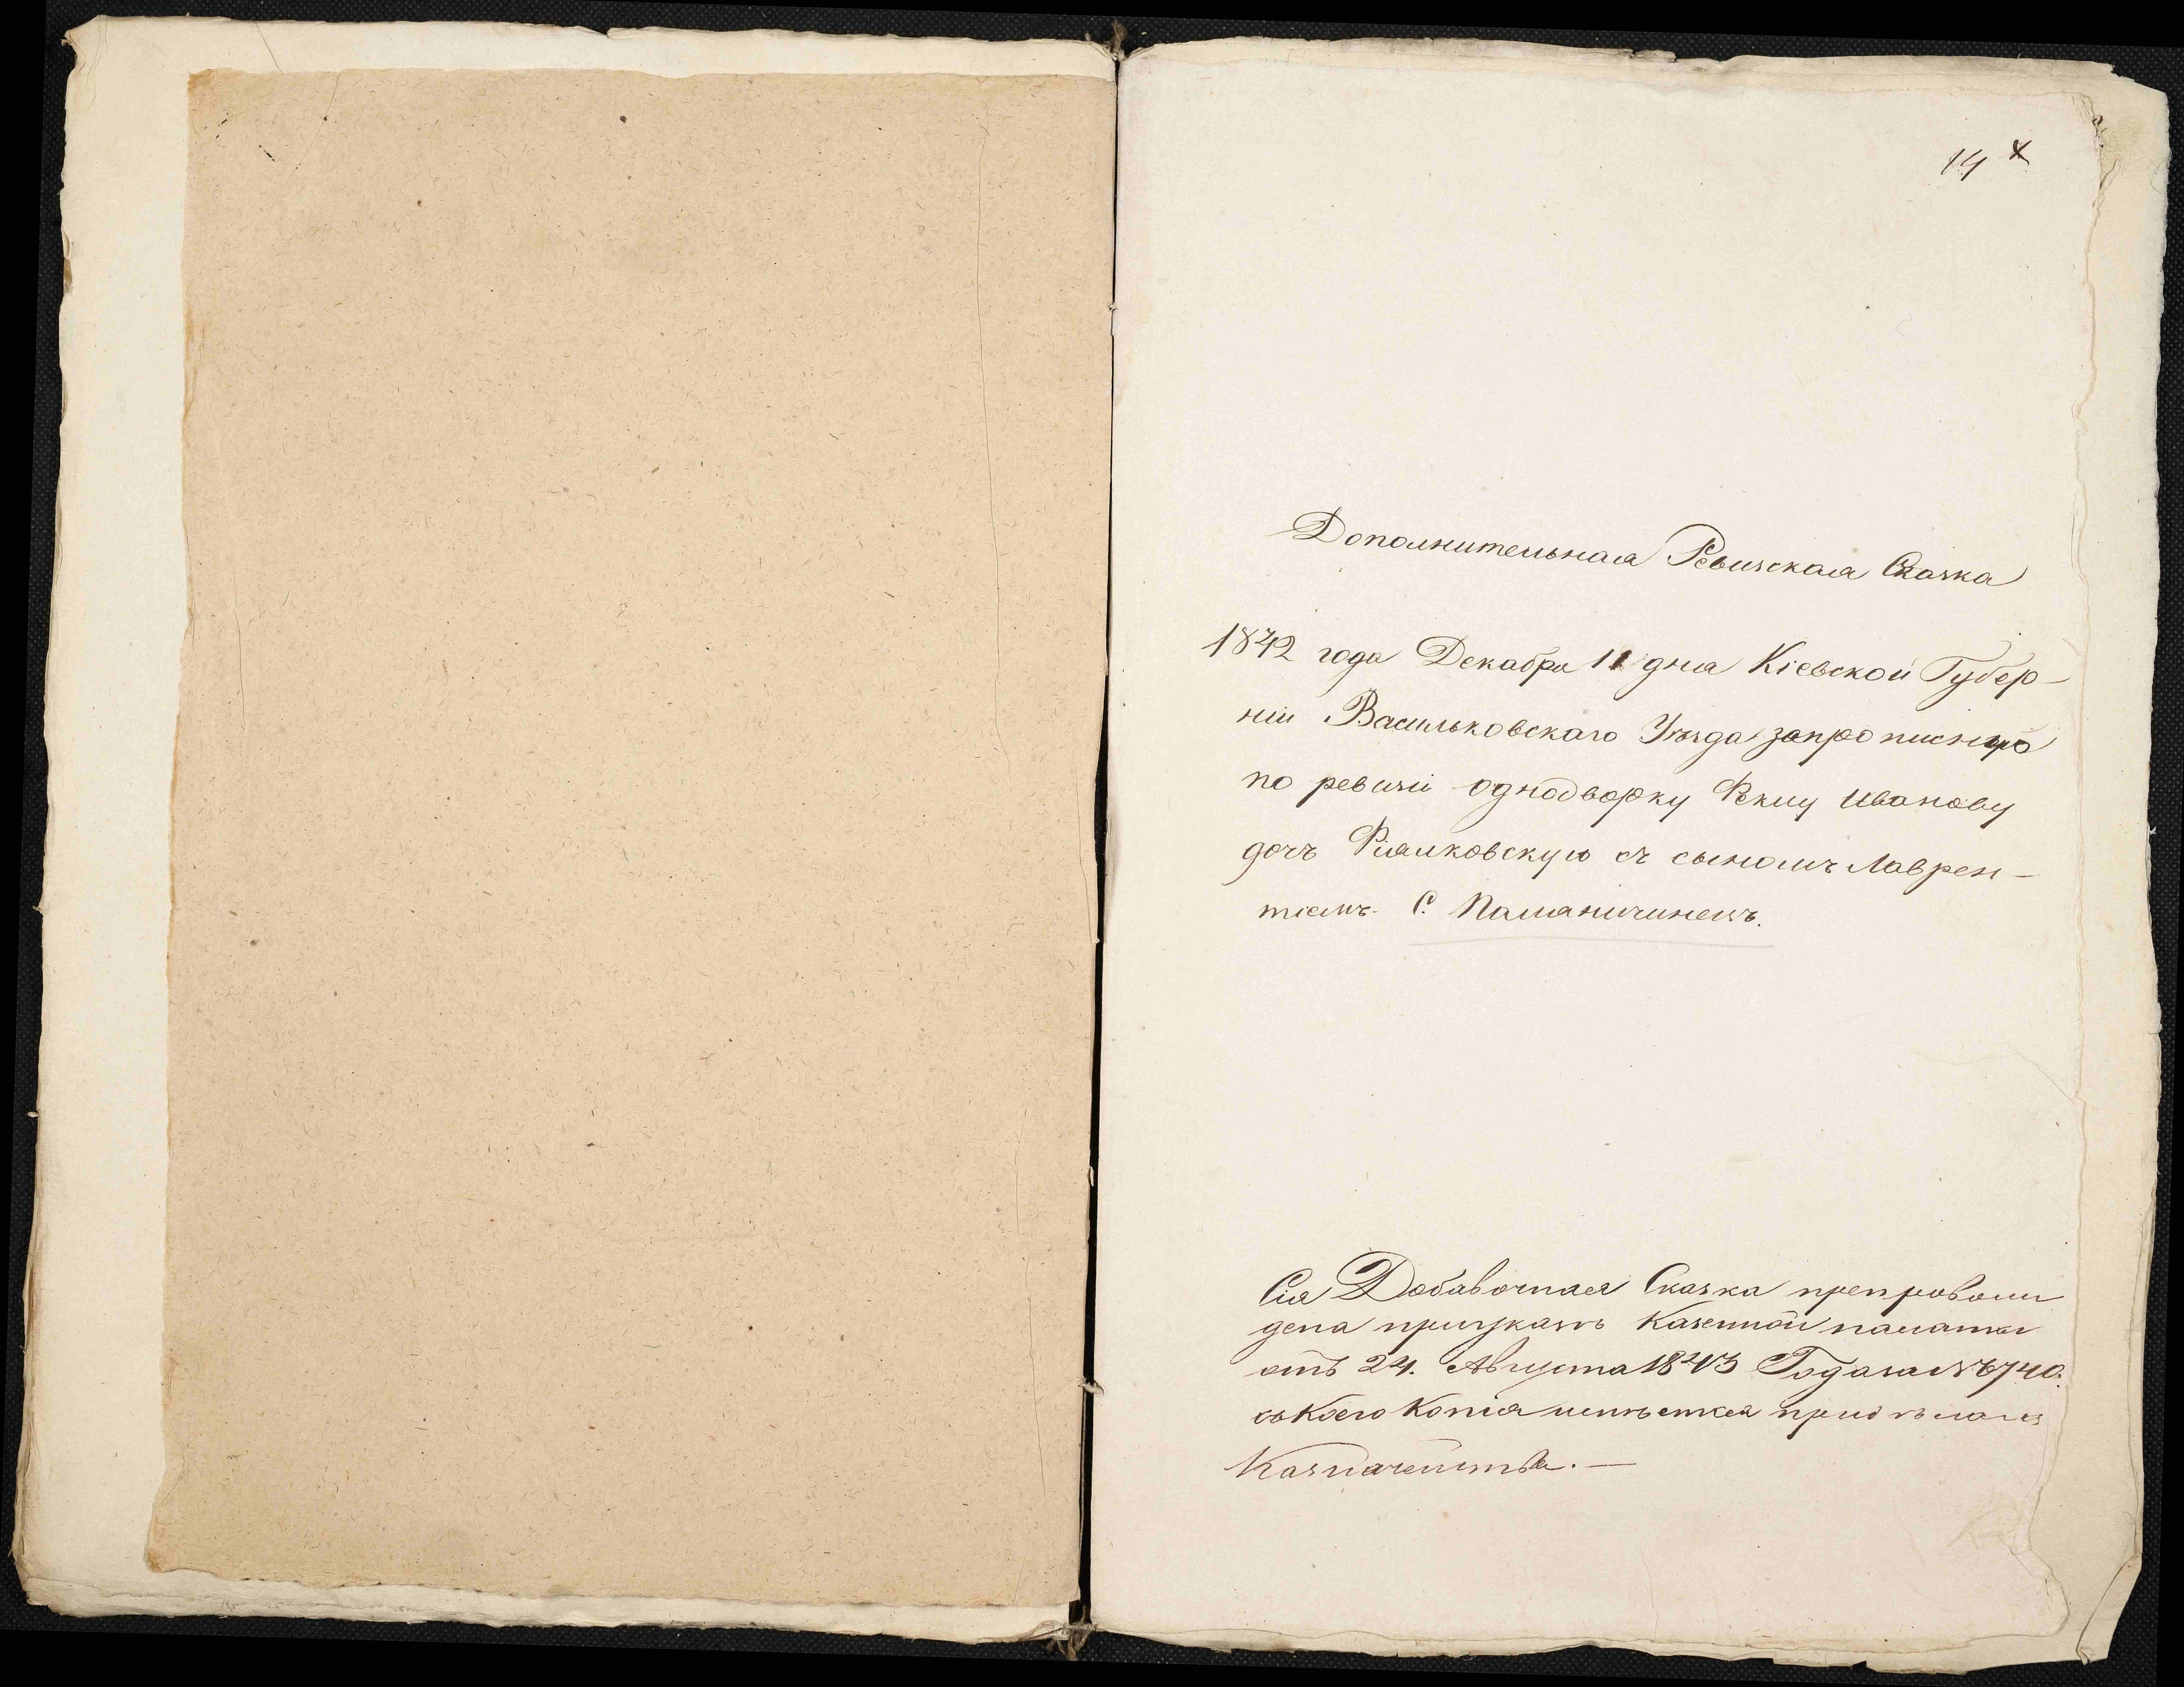 14 x
Дополнительная Ревизская Сказка
1842 года Декабря 11 дня Кіевской Губер-
ніи Васильковскаго Уѣзда запро писную
по ревизіи однодворку Феклу Иванову
дочъ Фіалковскую съ сыномъ Лаврен-
тіемъ. С. Паланичинецъ.
Сія Добавочная Сказка препровож
дена приуказѣ Казенной палаты
отъ 24. Августа 1843 Года за №
съ Коего Копія имѣется
Казначейства. —